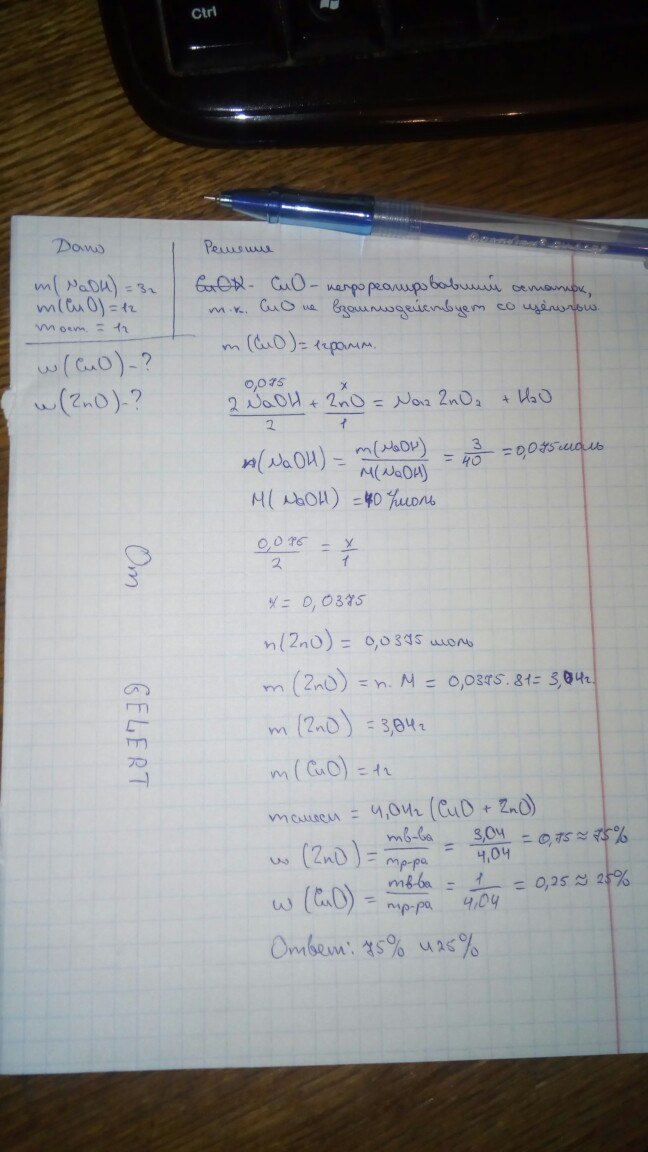 Ctrl
Дано
m(NaOH) = 3г
m(CuO) = 1г
mост. = 1г
w(CuO) - ?
w(ZnO) - ?
Решение
CuO - непрореагировавший остаток,
т.к. CuO не взаимодействует со щёлочью.
m(CuO) = 1 грамм.
0,075 x
2NaOH + ZnO = Na2ZnO2 + H2O
2 1
n(NaOH) = m(NaOH)/M(NaOH) = 3/40 = 0,075 моль
M(NaOH) = 40 г/моль
0,075/2 = x/1
x = 0,0375
n(ZnO) = 0,0375 моль
m(ZnO) = n · M = 0,0375 · 81 = 3,04г.
m(ZnO) = 3,04г
m(CuO) = 1г
mсмеси = 4,04г (CuO + ZnO)
w(ZnO) = mв-ва/mр-ра = 3,04/4,04 = 0,75 ≈ 75%
w(CuO) = mв-ва/mр-ра = 1/4,04 = 0,25 ≈ 25%
Ответ: 75% и 25%
От
GELERT